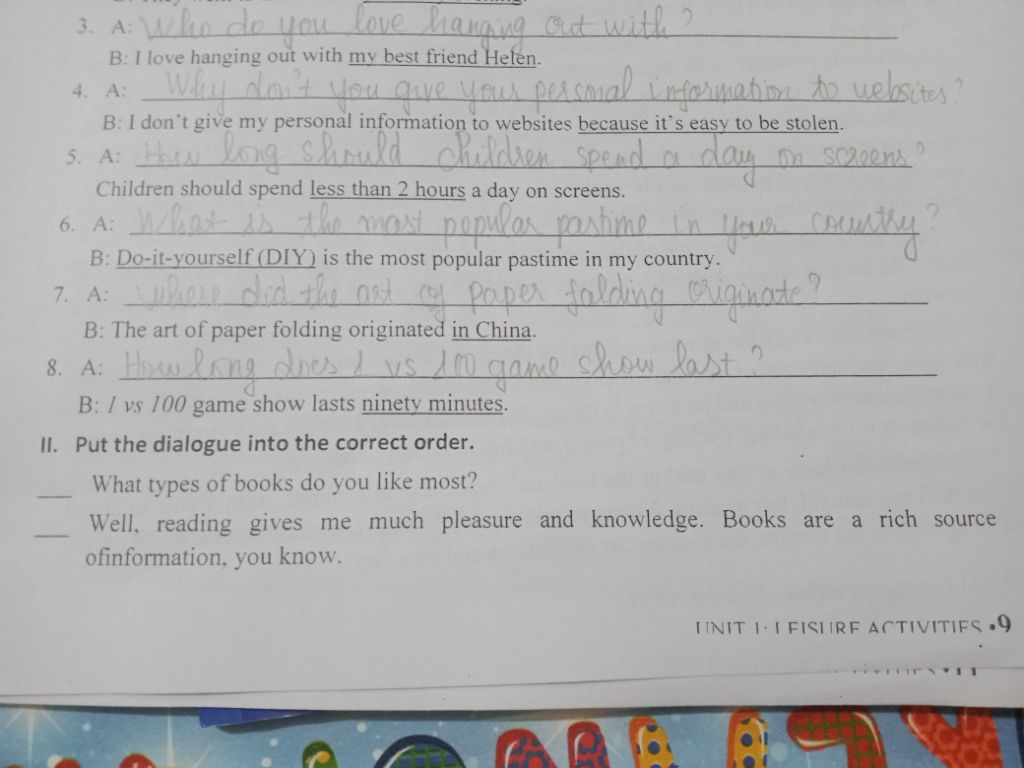 3. A: Who do you love hanging out with?
B: I love hanging out with my best friend Helen.
4. A: Why don't you give your personal information to websites?
B: I don't give my personal information to websites because it's easy to be stolen.
5. A: How long should children spend a day on screens?
Children should spend less than 2 hours a day on screens.
6. A: What is the most popular pastime in your country?
B: Do-it-yourself (DIY) is the most popular pastime in my country.
7. A: Where did the art of paper folding originate?
B: The art of paper folding originated in China.
8. A: How long does 1 vs 100 game show last?
B: 1 vs 100 game show lasts ninety minutes.
II. Put the dialogue into the correct order.
___ What types of books do you like most?
___ Well, reading gives me much pleasure and knowledge. Books are a rich source
ofinformation, you know.
UNIT 1: LEISURE ACTIVITIES •9